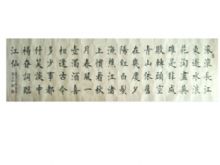 滾滾長江
東逝水浪
花淘盡英
雄是非成
敗轉頭空
青山依舊
在幾度夕
陽紅白髮
漁樵江渚
上慣看秋
月春風一
壺濁酒喜
相逢古今
多少事都
付笑談中
楊慎詞臨
江仙